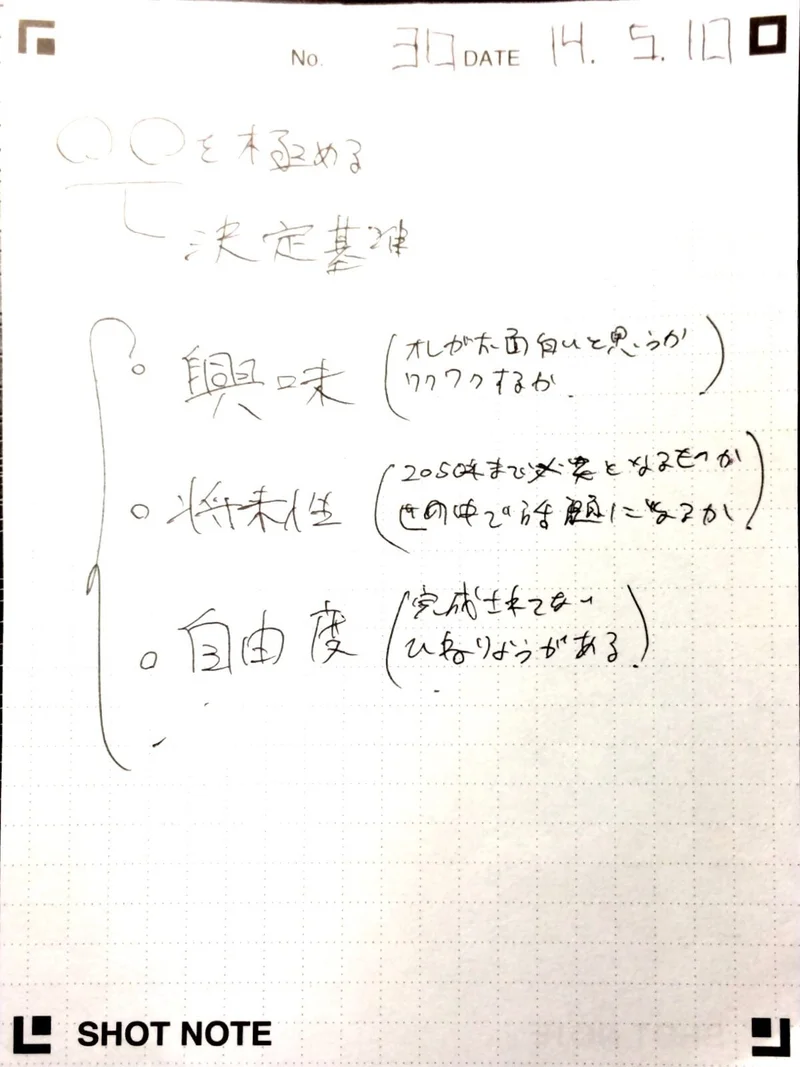 No. 30 DATE 14. 5. 10
○○を極める
決定基準
○ 興味 (オレが面白いと思うか
ワクワクするか)
○ 将来性 (2050年まで必要となるもつか
世の中で話題になるか)
○ 自由度 (完成されてない
ひねりようがある)
SHOT NOTE